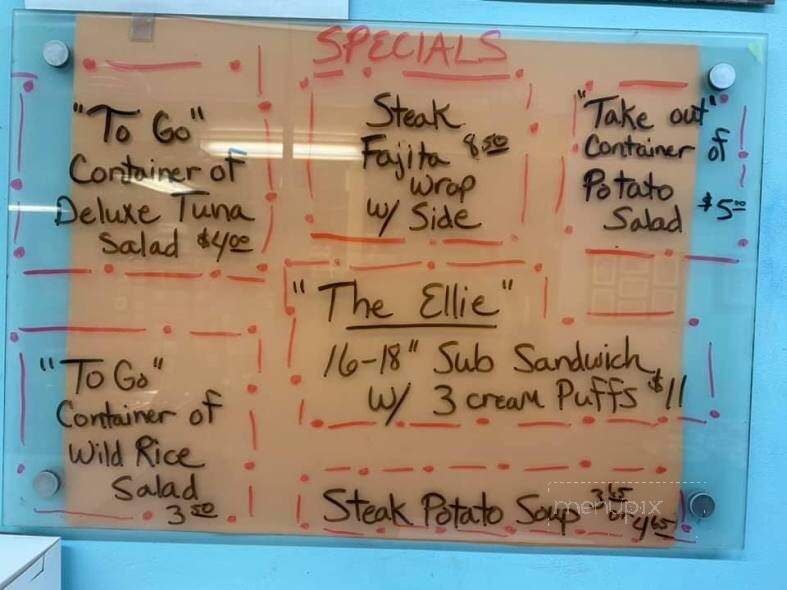 SPECIALS
"To Go"
Container of
Deluxe Tuna
Salad $4.00
Steak
Fajita 8.50
Wrap
w/ Side
"Take out"
Container of
Potato
Salad $5.00
"The Ellie"
16-18" Sub Sandwich
w/ 3 cream Puffs $11
"To Go"
Container of
Wild Rice
Salad
3.50
Steak Potato Soup 3.65 or 4.65
menupix